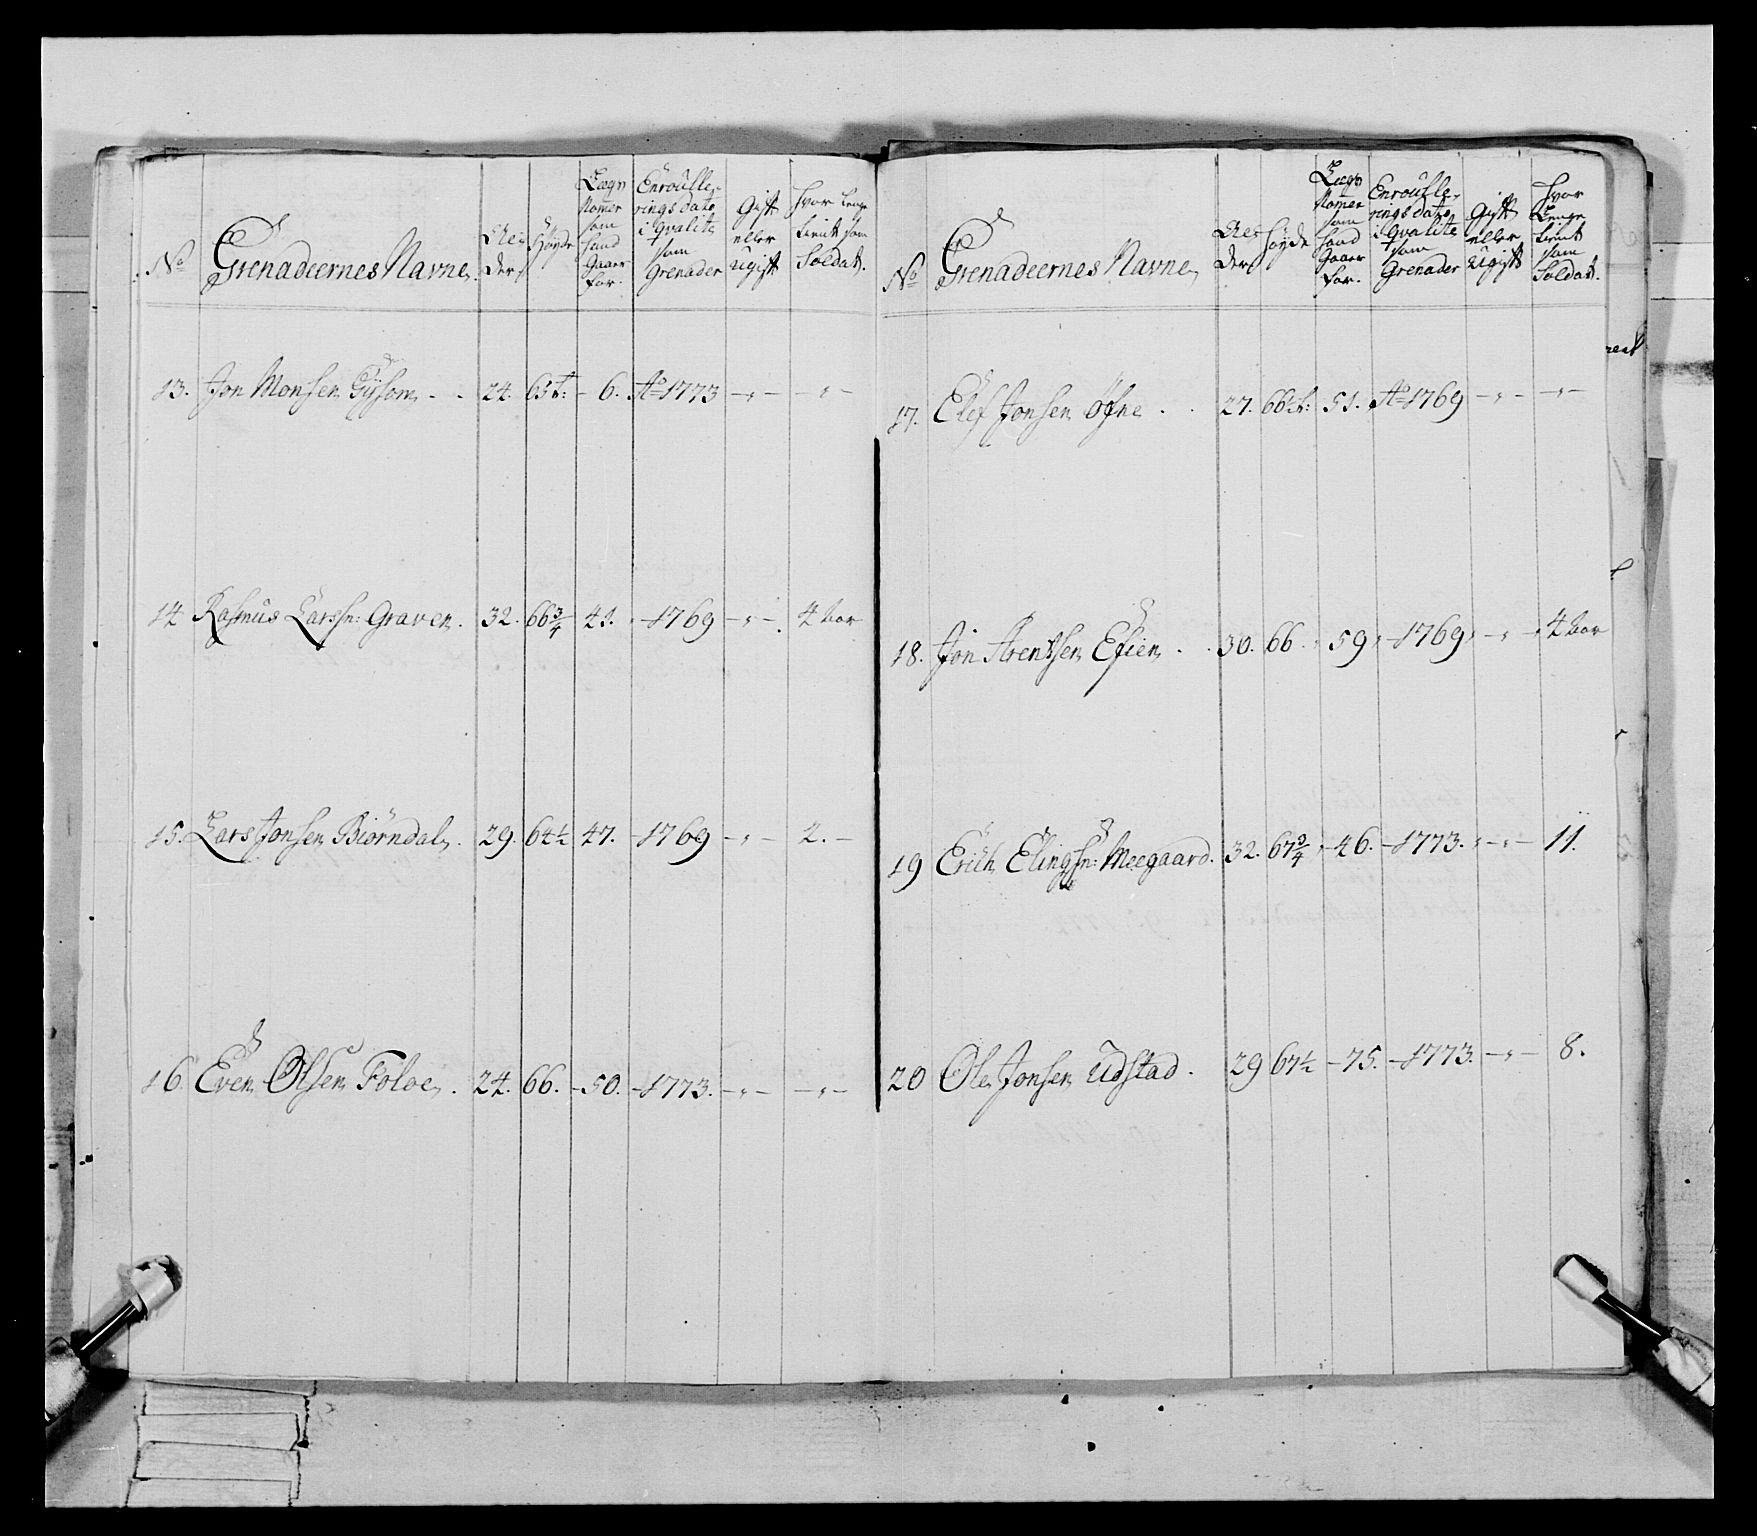 No
Grenadeernes Navne
Al-
der
Høyde
Lægs
Nomer
som
hand
Gaaer
for.
Enroulle-
rings dato
i Qvalite
som
Grenader
Gift
eller
Ugift
Hvor Lenge
tient som
Soldat.
13. Jon Monsen . . 24. 65 t: - 6. Ao 1773 - „ - - „ -
14 Rasmus Larssn: Graven. 32. 66 3/4 41. - 1769 - „ - 4 aar
15. Lars Jonsen Biørndal. 29. 64 1/2 47. - 1769 - „ - 2. -
16. Even Olsen Foloe. 24. 66. - 50. - 1773. - „ - - „ -
No
Grenadeernes Navne
Al-
der
Høyde
Lægs
Nomer
som
hand
Gaaer
for.
Enroulle-
rings dato
i Qvalite
som
Grenader
Gift
eller
Ugift
Hvor
Lenge
tient
som
Soldat.
17. Elef Jonsen Øfne . . 27. 66 51. Ao 1769 - „ - - „ -
18. Jon Arentsen Efien . . 30. 66. 59 - 1769 - „ - 4 aar
19 Erich Elingsn: Meegaard. 32. 67 3/4 - 46. - 1773. - „ - 11.
20 Ole Jonsen Udstad . 29 67 1/2 - 75. - 1773. - „ - 8.